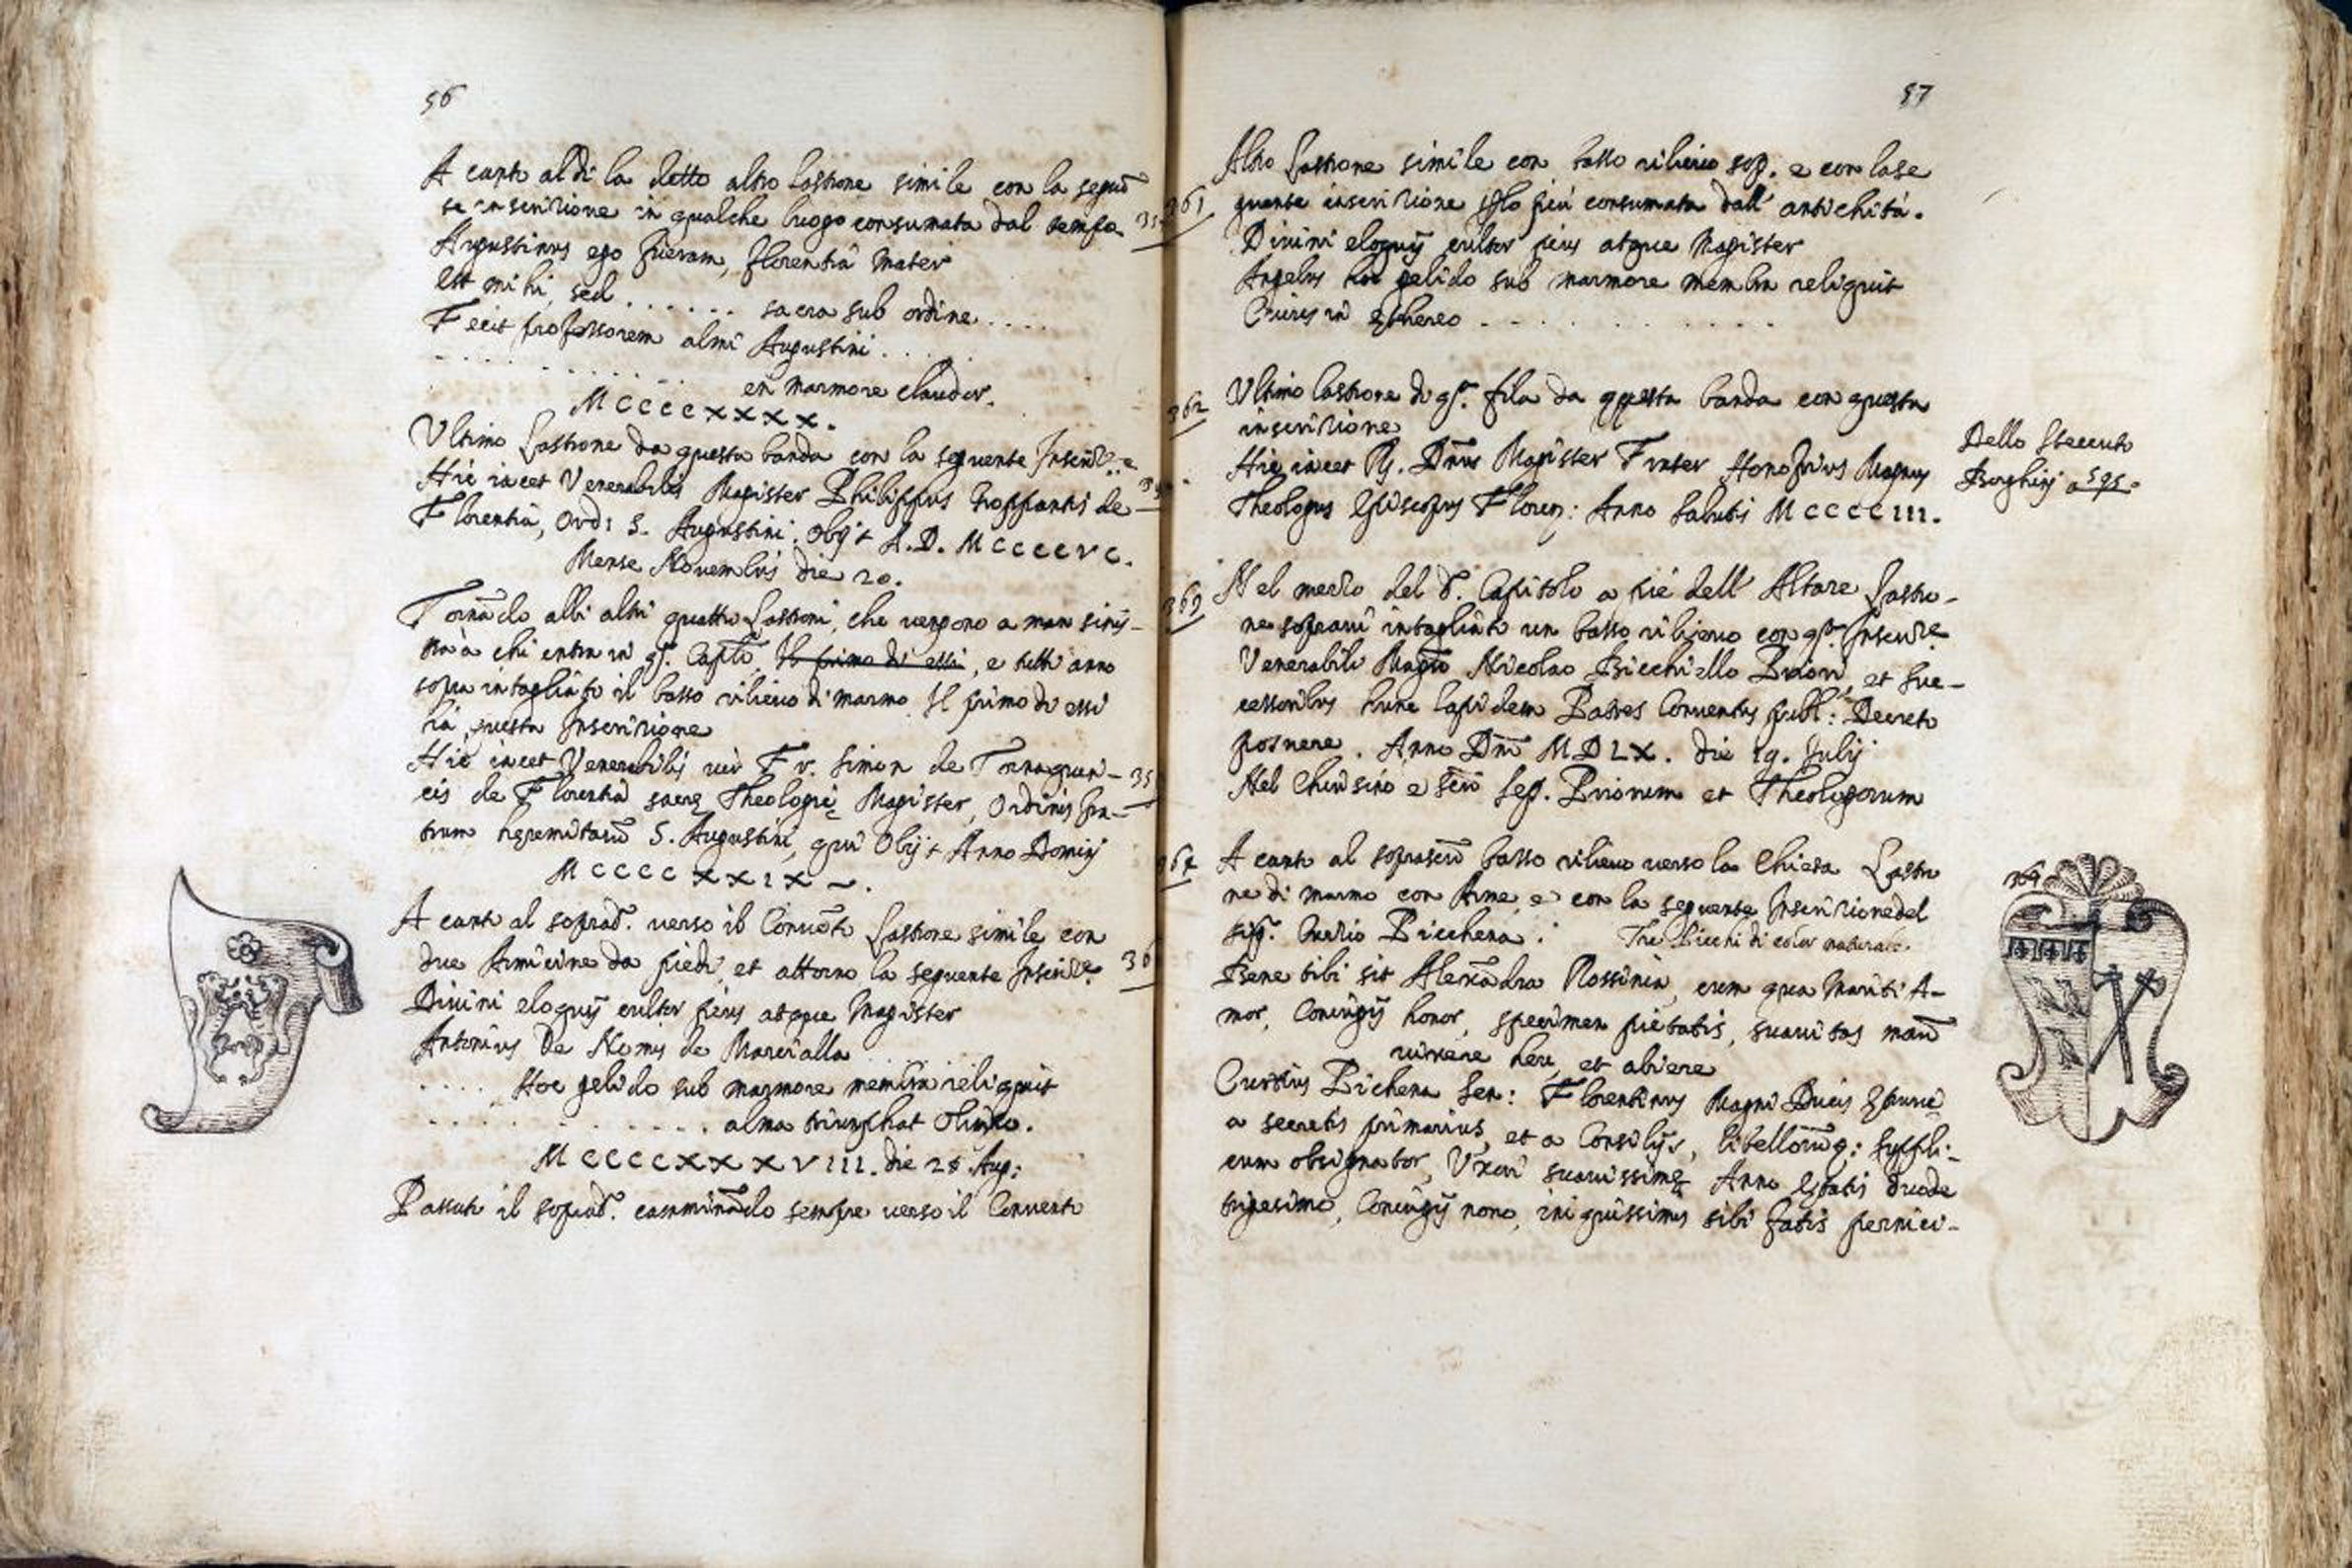 56
A canto al di la detto altro lastrone simile con la seguē
te inscrizione in qualche luogo consumata dal tempo
Augustinus ego fueram, florentia Mater
est mihi, sed ...... sacra sub ordine....
Fecit professorem almi Augustini.....
............ en marmore claudor.
MCCCCXXXX.
Ultimo Lastrone da questa banda con la seguente Inscriz.e
Hic iacet Venerabilis Magister Philippus de
Florentia, Ord: S. Augustini. Obijt A.D. MCCCCVC.
Mense Novembris die 20.
Tornādo alli altri quattro Lastroni, che vengono a man sinis-
tra a chi entra in q.o Cap.lo, Il primo di essi, e tutti anno
sopra intagliato il basso rilievo di marmo. Il primo di essi
ha questa Inscrizione
Hic iacet Venerabilis vir Fr. Simon de Tornaquin-
cis de Florentia sacrę Theologię Magister, Ordinis fra-
trum heremitarū S. Augustini, qui Obijt Anno Domini
MCCCCXXIX.
A canto al soprad. verso il Convēto Lastrone simile con
due Armicine da piedi, et attorno la seguente Inscriz.e
Divini eloquij cultor pius atque Magister
Antonius De Nomis de Marcialla
.... Hoc gelido sub marmore membra reliquit
............ alma triumphat Olimpo.
MCCCCXXXVIII. die 28 Aug:
Passato il soprad. camminādo sempre verso il Convento
57
361
Altro Lastrone simile con basso rilievo sop. e con la se
guente inscrizione solo più consumata dall' antichità.
Divini eloquij cultor pius atque Magister
Angelus hoc gelido sub marmore membra reliquit
Cuius in ęthereo . . . . . . .
362
Ultimo lastrone di q.a fila da questa banda con questa
inscrizione
Hic iacet R. Dñus Magister Frater Honofrius Magnus
Theologus Episcopus Floren: Anno Salutis MCCCCIII.
Dello Steccuto
Borghini a 595.
363
Nel mezzo del d. Capitolo a piè dell' Altare Lastro-
ne sopravi intagliato un basso rilievo con q.a Inscriz.e
Venerabili Magrō Nicolao Bicchiello Priori, et suc-
cessoribus hunc lapidem Patres Conventus publ: Decreto
posuere. Anno Dñi MDLX. die 19. Julij
Nel Chiusino è scrō Sep. Priorum et Theologorum
364
A canto al soprascrō basso rilievo verso la Chiesa Lastro
ne di marmo con Arme, e con la seguente Inscrizione del
Sig.r Curzio Picchena.
Tre Picchi di color naturale.
Bene tibi sit Alexādra Rossinia, cum qua Mariti A-
mor, Coniugij honor, specimen pietatis, suavitas morū
vixere heu, et abiere
Curtius Pichena Sen: Florentinus Magni Ducis Etrurię
a secretis primarius, et a Consilijs, libellorūq: suppli-
cum obsignator, Uxori suavissimę Anno ętatis duode
trigesimo, Coniugij nono, iniquissimis sibi fatis pernici-
364